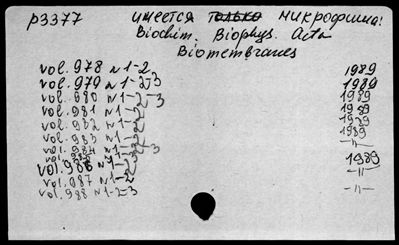 р3377 имеется только микрофиша!
Biochim. Biophys. Acta
Biomembranes
vol. 978 N 1-2 1989
vol. 979 N 1-2-3 1989
vol. 980 N 1-2-3 1989
vol. 981 N 1-2 1989
vol. 982 N 1-2 1989
vol. 983 N 1-2 1989
vol. 984 N 1-2-3 -"-
vol. 985
vol. 986 N 1-2 1989
vol. 987 N 1-2 -"-
vol. 988 N 1-2-3 -"-